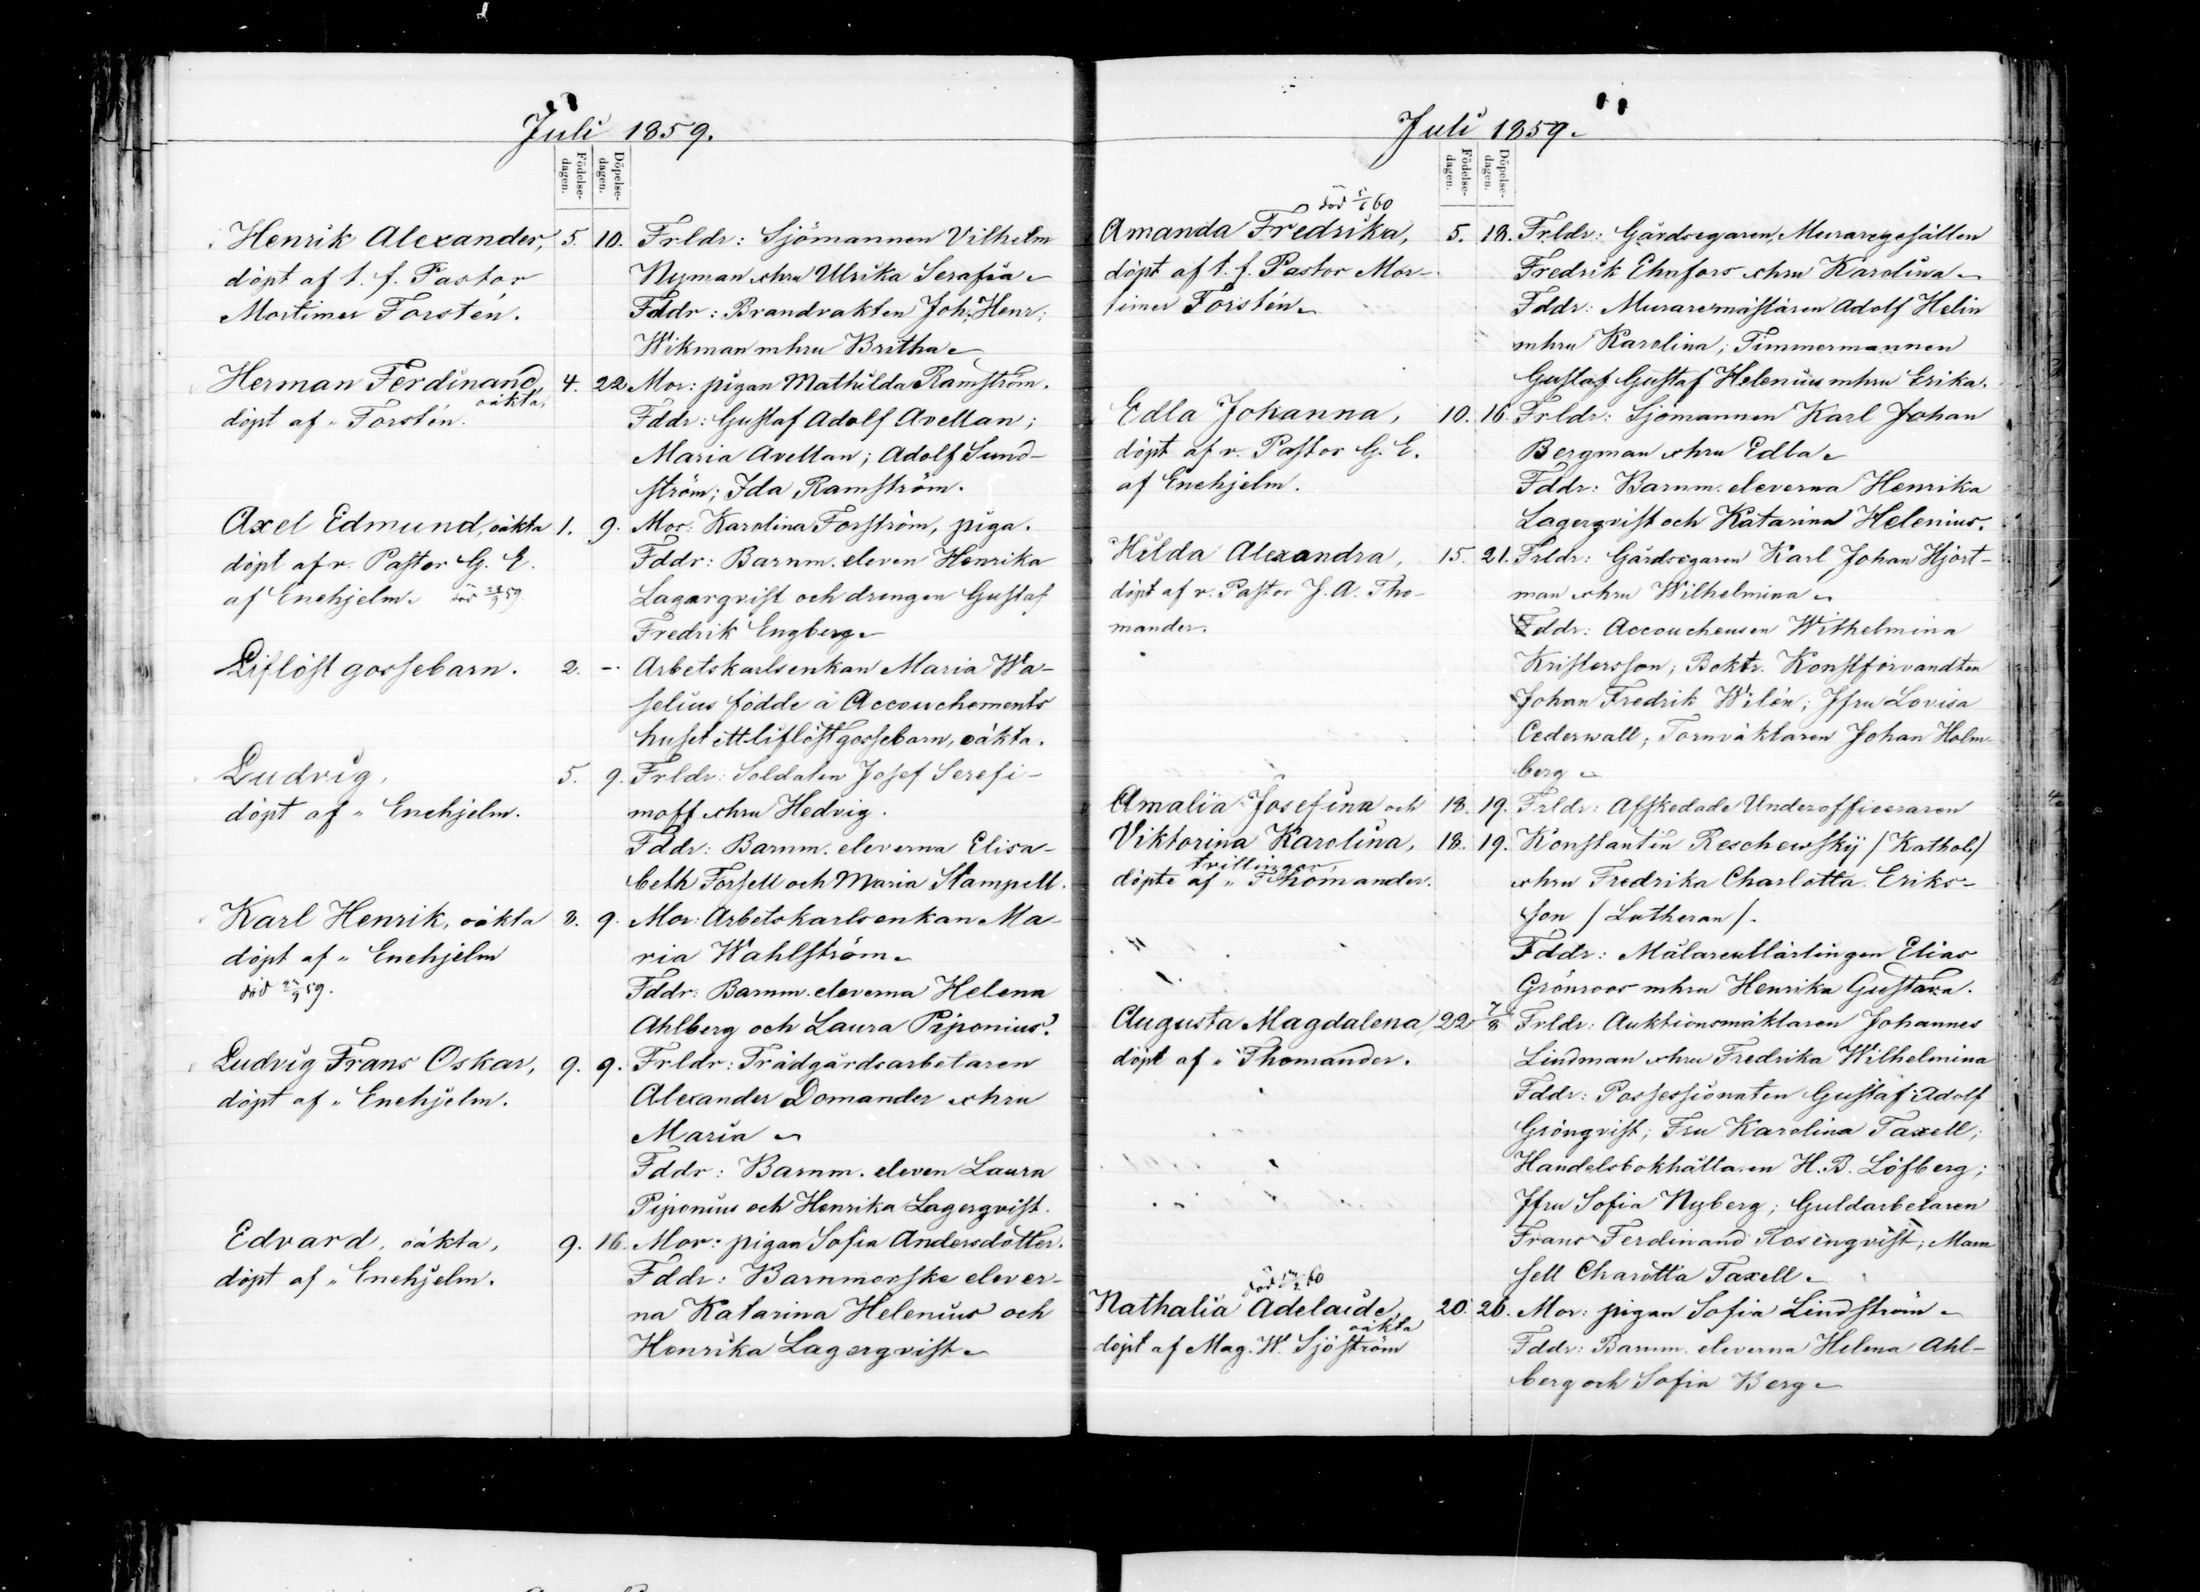 Juli 1859.
Födelse-
dagen.
Döpelse-
dagen.
Henrik Alexander, 5. 10. Frldr: Sjömannen Vilhelm
döpt af t. f. Pastor Nyman o hru Ulrika Serafia
Mortimer Forstén. Fddr: Brandvakten Joh: Henr:
Wikman m hru Britha
Herman Ferdinand, 4. 22. Mor: pigan Mathilda Ramström.
oäkta,
döpt af " Forstén. Fddr: Gustaf Adolf Avellan;
Maria Avellan; Adolf Sund-
ström; Ida Ramström.
Axel Edmund, oäkta 1. 9. Mor: Karolina Forström, piga.
döpt af v. Pastor G. E. Fddr: Barnm. eleven Henrika
af Enehjelm. död 59 Lagerqvist och drengen Gustaf
Fredrik Engberg
Liflöst gossebarn. 2. - Arbetskarlsenkan Maria Wa-
selius födde å Accouchements
huset ett liflöst gossebarn, oäkta.
Ludvig, 5. 9. Frldr: Soldaten Josef Serefi-
döpt af " Enehjelm. moff o hru Hedvig.
Fddr: Barnm. eleverna Elisa-
beth Forsell och Maria Stampell.
Karl Henrik, oäkta 8. 9. Mor: Arbetskarlsenkan Ma-
döpt af " Enehjelm ria Wahlström
död 59. Fddr: Barnm. eleverna Helena
Ahlberg och Laura Piponius.
Ludvig Frans Oskar, 9. 9. Frldr: Trädgårdsarbetaren
döpt af " Enehjelm. Alexander Domander o hru
Maria
Fddr: Barnm. eleven Laura
Piponius och Henrika Lagerqvist.
Edvard, oäkta, 9. 16. Mor: pigan Sofia Andersdotter.
döpt af " Enehjelm. Fddr: Barnmorske elever-
na Katarina Helenius och
Henrika Lagerqvist
Juli 1859.
Födelse-
dagen.
Döpelse-
dagen.
död 5/6 60
Amanda Fredrika, 5. 18. Frldr: Gårdsegaren, Muraregesällen
döpt af t. f. Pastor Mor- Fredrik Ehnfors o hru Karolina
timer Forstén Fddr: Muraremästaren Adolf Helin
m hru Karolina; Timmermannen
Gustaf Gustaf Helenius m hru Erika.
Edla Johanna, 10. 16. Frldr: Sjömannen Karl Johan
döpt af v. Pastor G. E. Bergman o hru Edla
af Enehjelm. Fddr: Barnm. eleverna Henrika
Lagerqvist och Katarina Helenius.
Hilda Alexandra, 15. 21. Frldr: Gårdsegaren Karl Johan Hjort-
döpt af v. Pastor J. A. Tho- man o hru Wilhelmina
mander. Fddr: Accoucheusen Wilhelmina
Kristersson; Boktr. Konstförvandten
Johan Fredrik Wilén; Jfru Lovisa
Cederwall; Tornväktaren Johan Holm-
berg
Amalia Josefina och 18. 19. Frldr: Afskedade Underofficeraren
Viktorina Karolina, 18. 19. Konstantin Reschewskij /Kathol:/
trillingar,
döpte af " Thomander. o hru Fredrika Charlotta Eriks-
son /Lutheran/.
Fddr: Målareutlärlingen Elias
Grönroos m hru Henrika Gustava.
Augusta Magdalena, 22 7/8 Frldr: Auktionsmäklaren Johannes
döpt af " Thomander. Lindman o hru Fredrika Wilhelmina
Fddr: Possessionaten Gustaf Adolf
Grönqvist; Fru Karolina Taxell;
Handelsbokhållaren H. B. Löfberg;
Jfru Sofia Nyberg; Guldarbetaren
Frans Ferdinand Rosenqvist; Mam
sell Charotta Taxell
död 60
Nathalia Adelaide, 20. 26. Mor: pigan Sofia Lindström
oäkta
döpt af Mag. W. Sjöström Fddr: Barnm. eleverna Helena Ahl-
berg och Sofia Berg